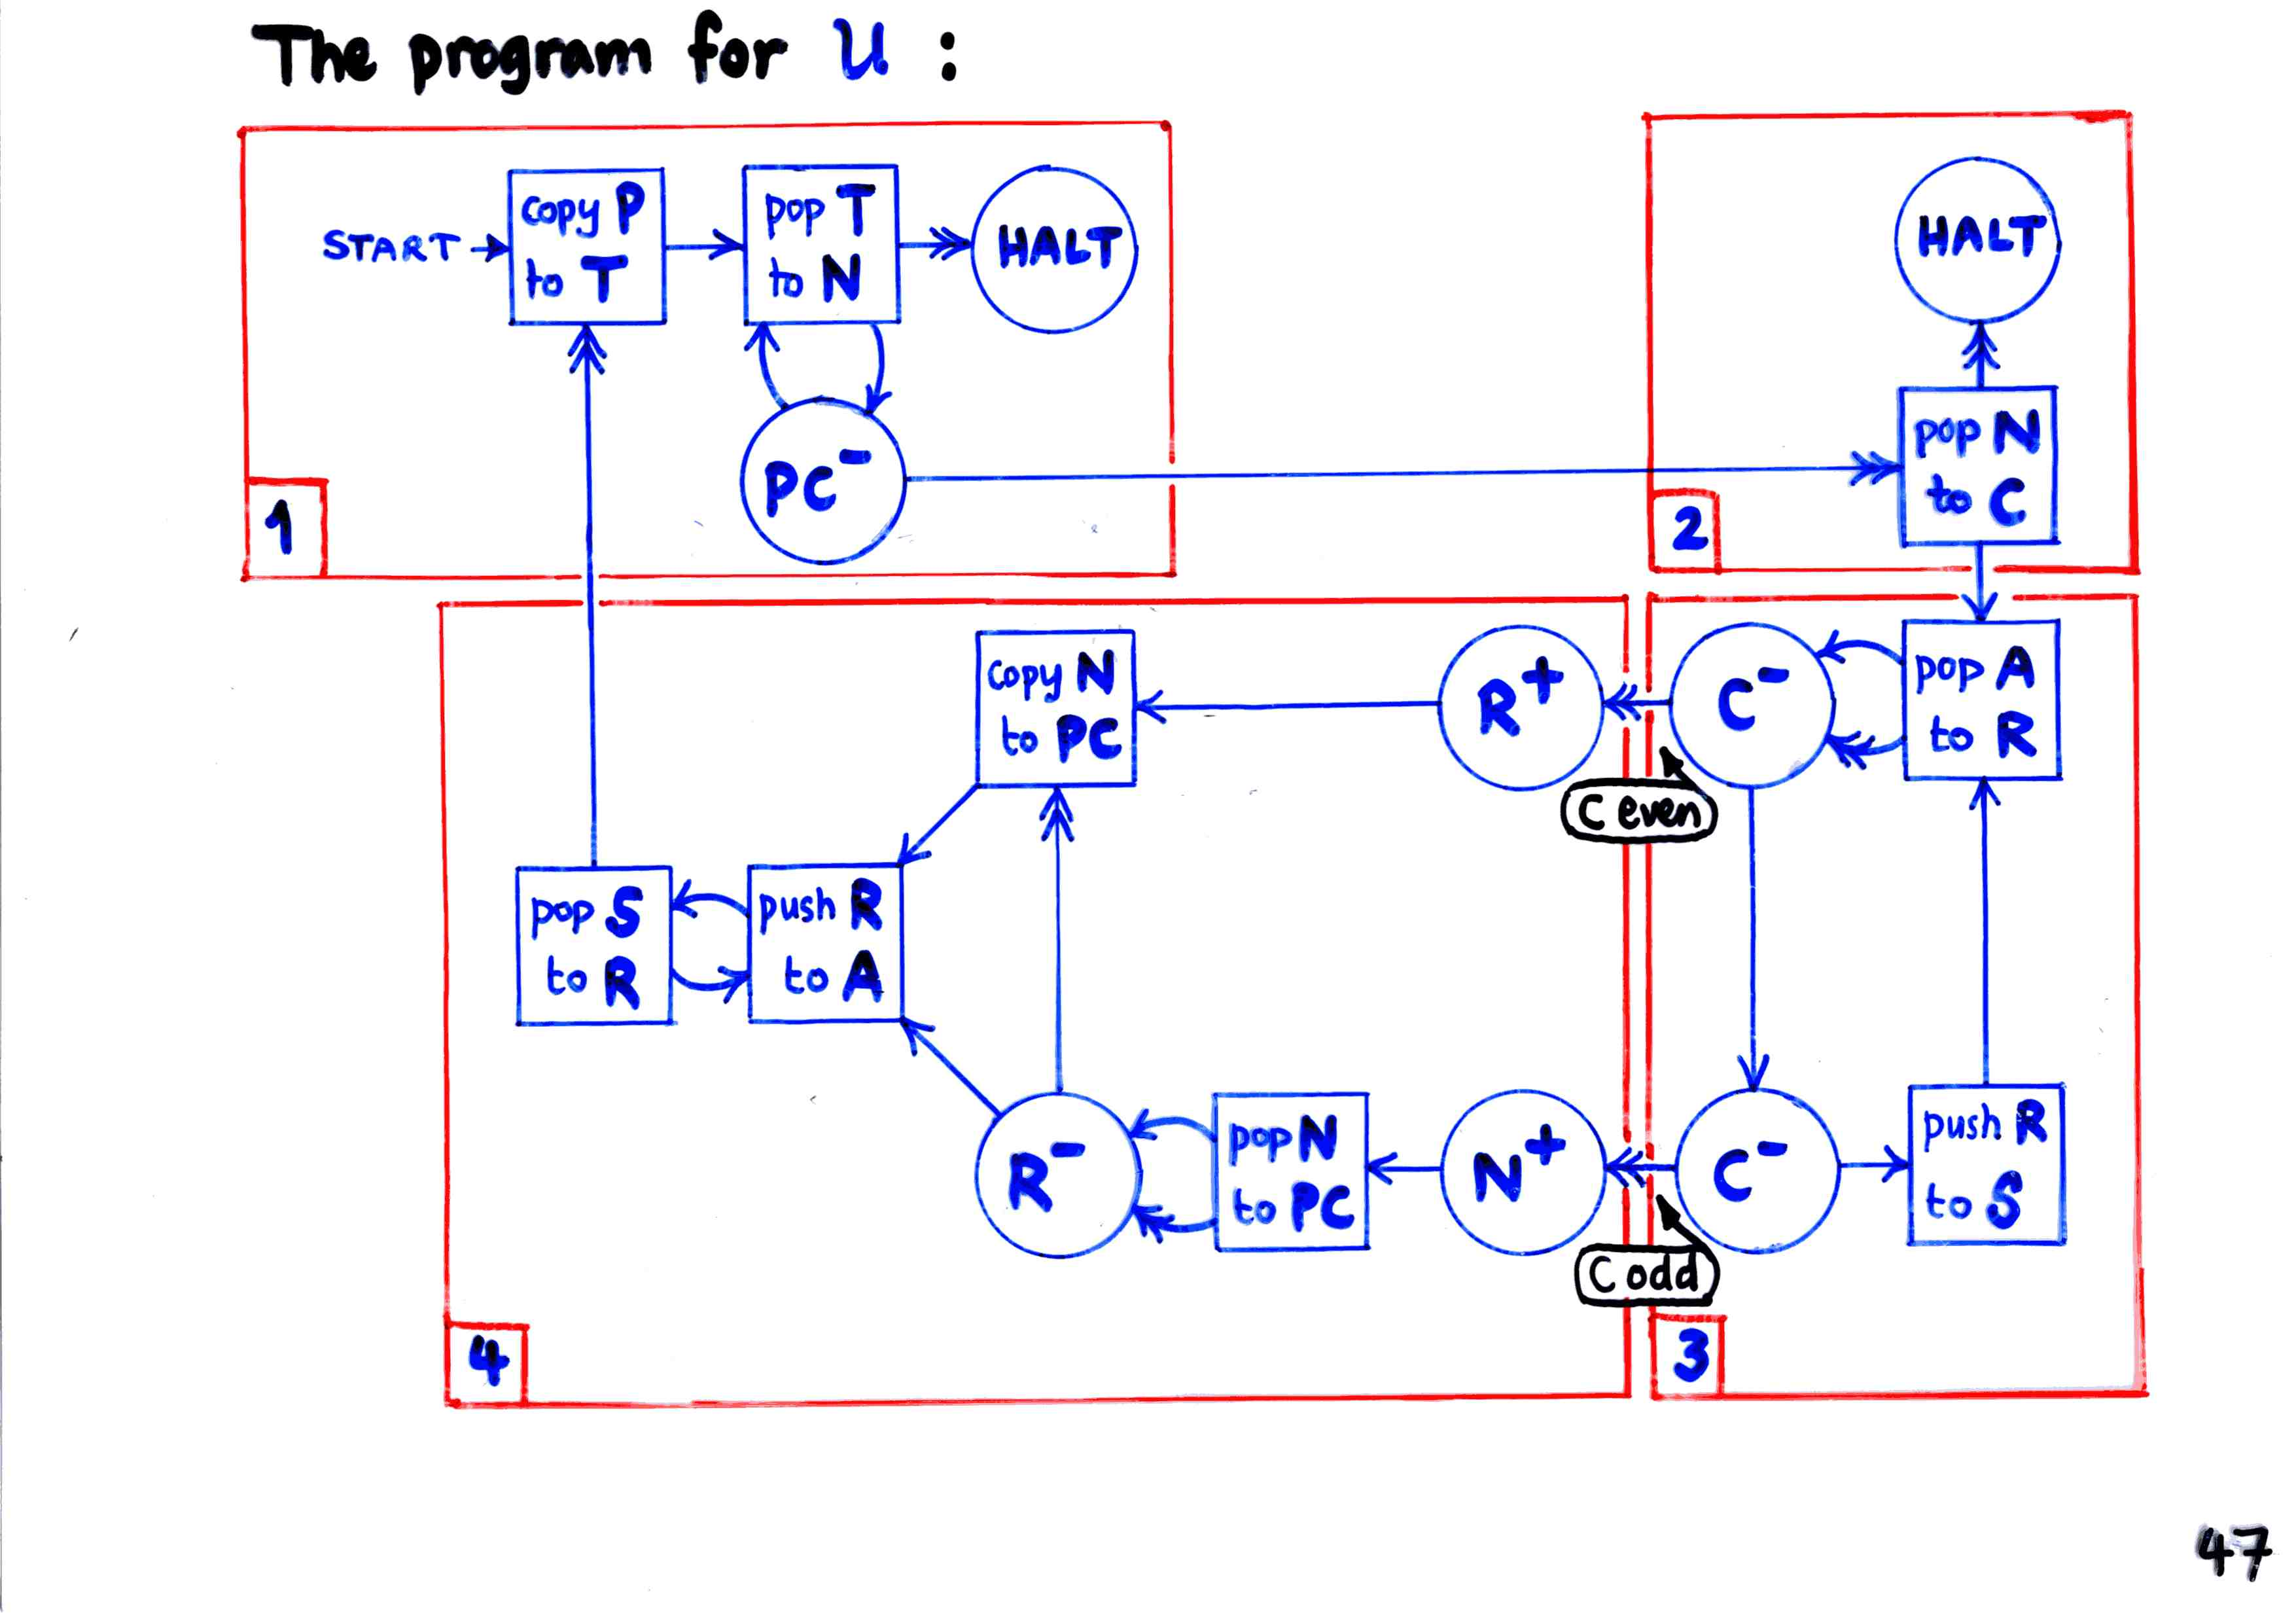 The program for U :
START
copy P
to T
pop T
to N
HALT
PC⁻
1
HALT
pop N
to C
2
copy N
to PC
R⁺
C⁻
pop A
to R
C even
pop S
to R
push R
to A
R⁻
pop N
to PC
N⁺
C⁻
push R
to S
C odd
4
3
47